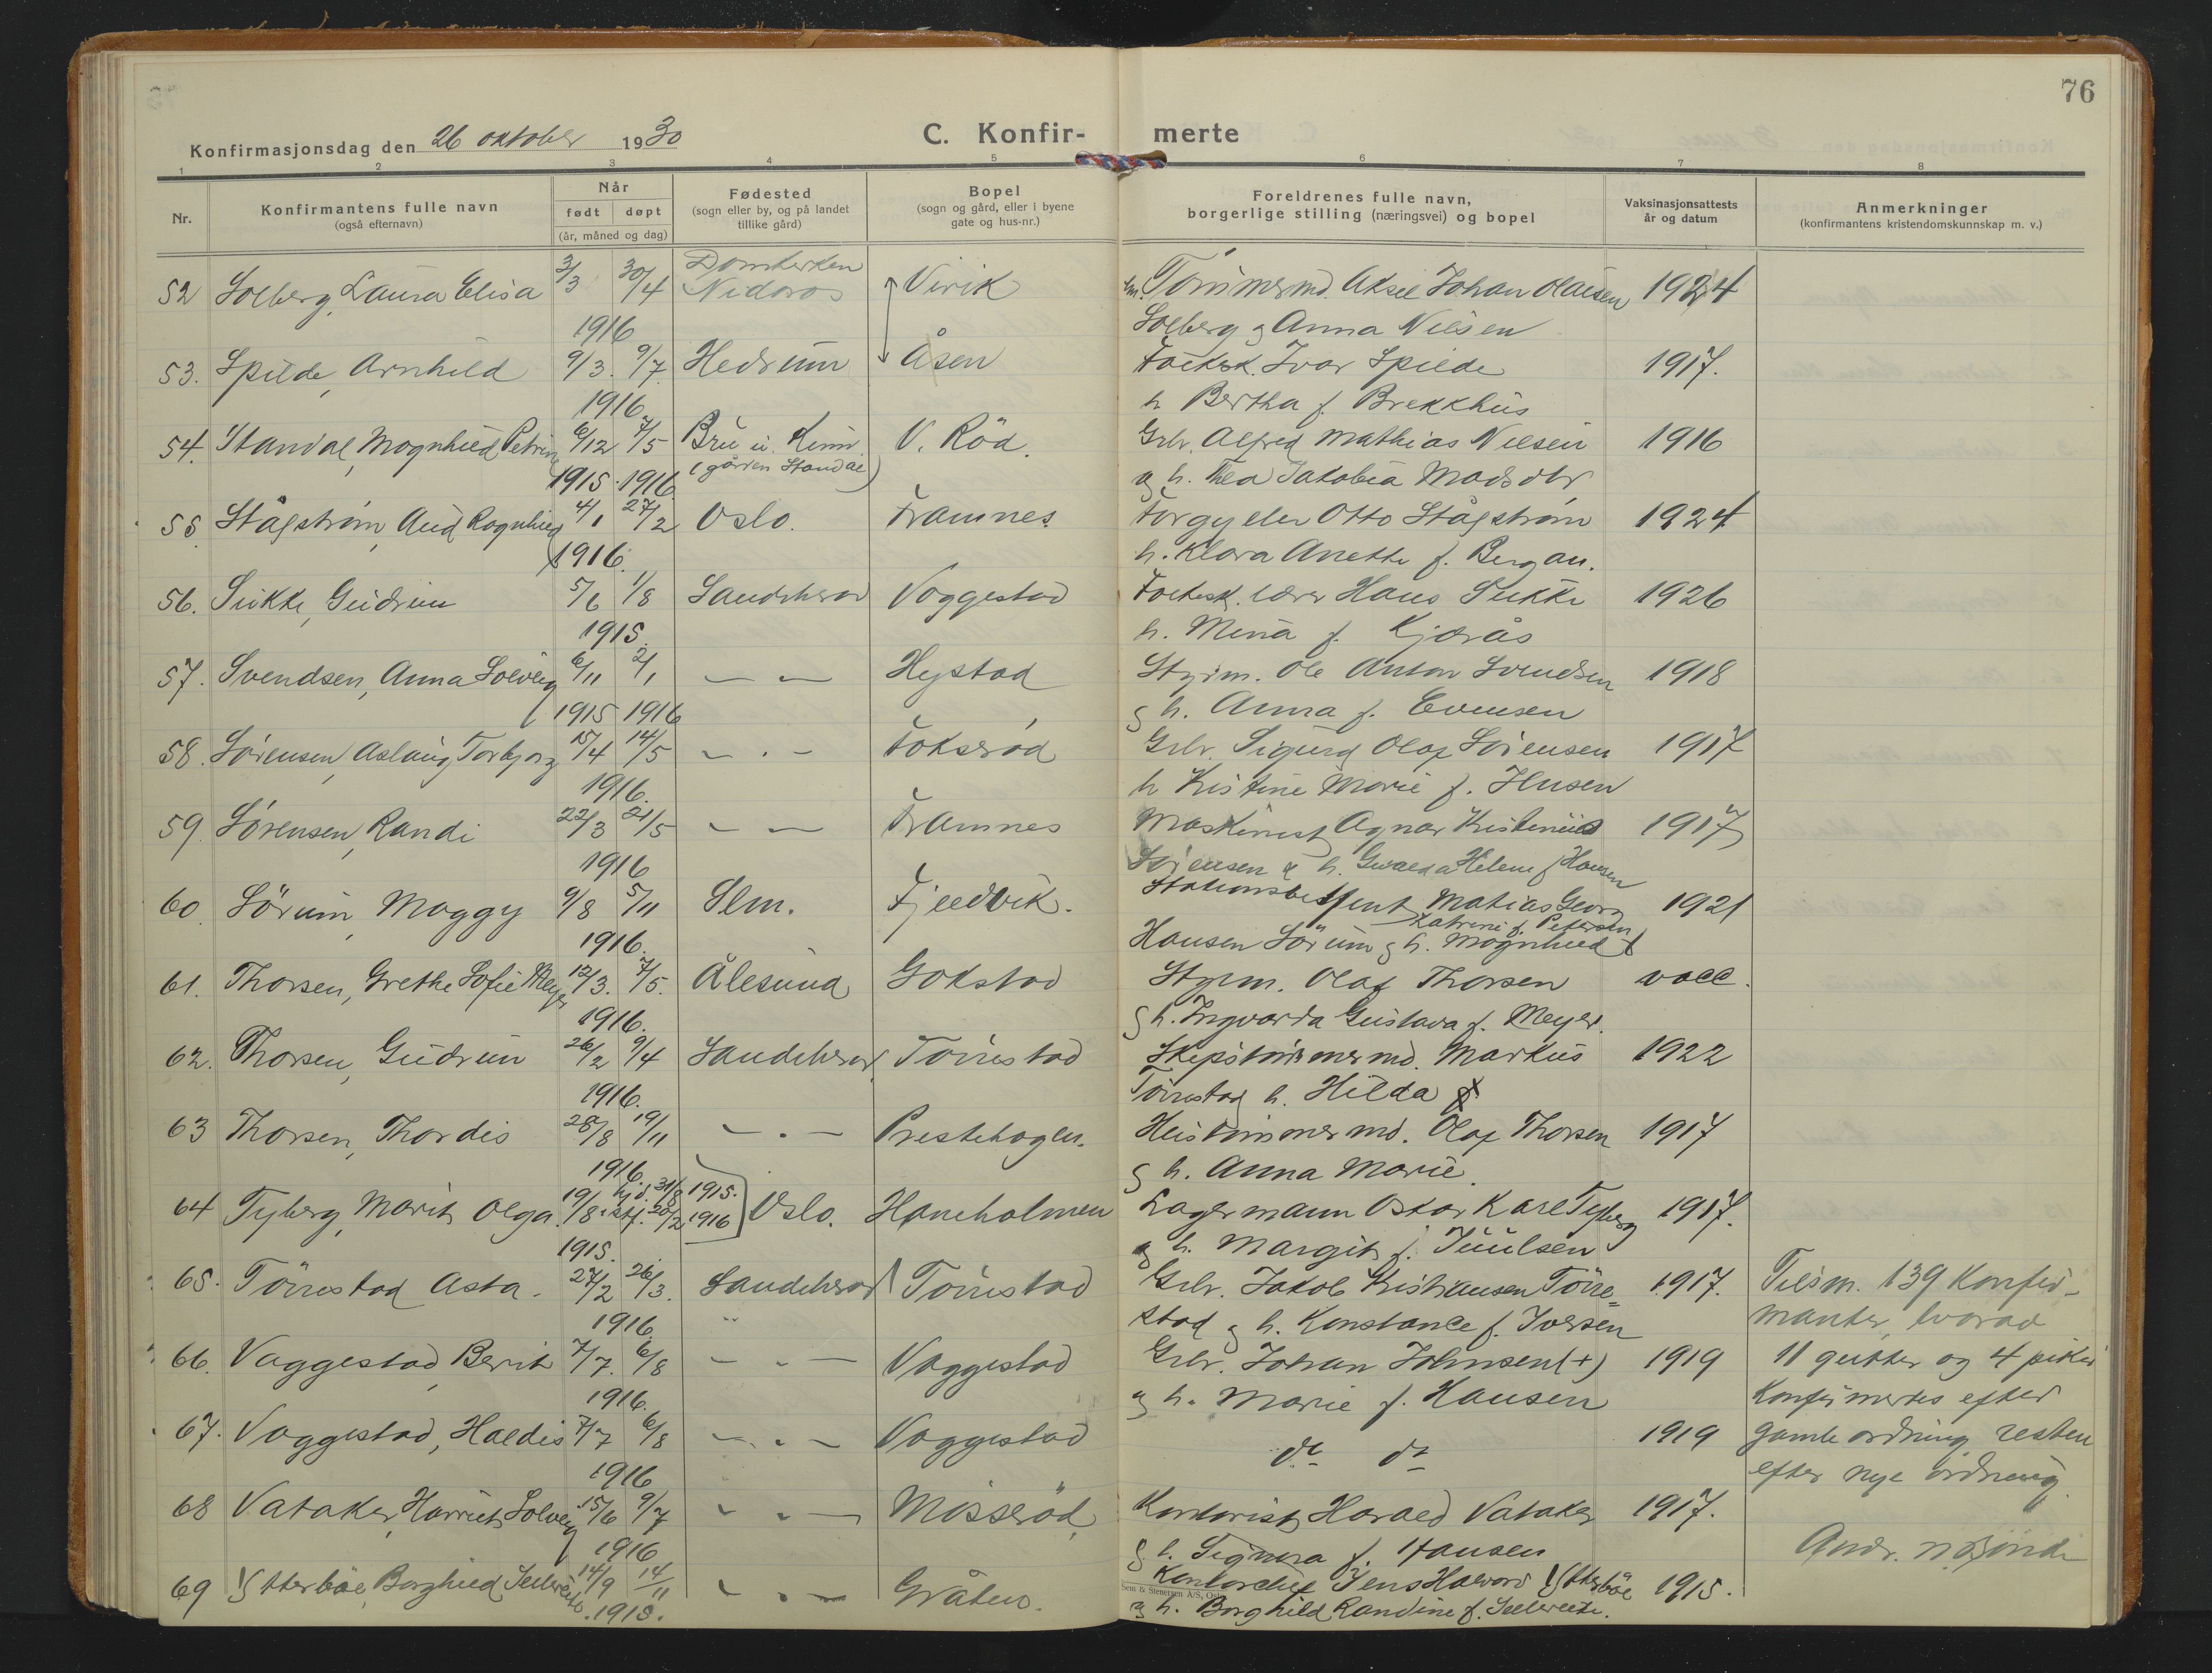 76
Konfirmasjonsdag den 26 oktober 1930
C. Konfir- merte
1 2 3 4 5 6 7 8
Nr.
Konfirmantens fulle navn
(også efternavn)
Når
født døpt
(år, måned og dag)
Fødested
(sogn eller by, og på landet
tillike gård)
Bopel
(sogn og gård, eller i byene
gate og hus-nr.)
Foreldrenes fulle navn,
borgerlige stilling (næringsvei) og bopel
Vaksinasjonsattests
år og datum
Anmerkninger
(konfirmantens kristendomskunnskap m. v.)
Domkirken
52 Solberg, Laura Elisa 3/3 30/4 Nidaros Virik Tømmermd. Aksel Johan Olaisen 1924
1916 Solberg g Anna Nilsen
53. Spilde, Arnhild 9/3. 9/7 Hedrum Åsen Folksk. Ivar Spilde 1917.
1916 h Bertha f. Brekkhus
54. Standal, Magnhild Petrine 6/12 7/5 Bru i Kinn V. Röd. Grbr. Alfred Mathias Nilsen 1916
1915 1916 (gården Standal) g h. Thea Jakobia Madsdtr
55. Stålstrøm, Aud Ragnhild 4/1 27/2 Oslo. Framnes Forgyller Otto Stålstrøm 1924
1916. h. Klara Anette f. Bergan.
56. Sukke, Gudrun 5/6 1/8 Sandeherad Vaggestad Folkesk. lærer Hans Sukke 1926
1915. h. Mina f. Kjærås
57. Svendsen, Anna Solveig 6/11 2/1 — — Hystad Styrm. Ole Anton Svendsen 1918
1915 1916 g h. Anna f. Evensen
58. Sörensen, Aslaug Torbjorg 15/4 14/5 — . — Fokserød Grbr. Sigurd Olaf Sörensen 1917
1916. h Kristine Marie f.
59. Sörensen, Randi 22/3 21/5 — — Framnes Maskinist Agnar Kristenius 1917
1916 Sörensen g h. Helene f Hansen
60. Sörum, Maggy 9/8 5/11 Slm. Fjeldvik. Stationsbetjent Matias Georg 1921
Katrine f. Petersen
1916. Hansen Sörum g h. Magnhild
61. Thorsen, Grethe Sofie Meyer 12/3. 7/5. Ålesund Gokstad Styrm. Olaf Thorsen vacc.
1916. g h. Ingvarda Gustava f. Meyer.
62. Thorsen, Gudrun 26/2 9/4 Sandeherad Tørrestad Skipstømmermd. Markus 1922
1916. Tørrestad h. Hilda
63 Thorsen, Thordis 28/8 19/11 — . — Prestehagen. Hustømmermd. Olaf Thorsen 1917
1916. g h. Anna Marie.
64 Tyberg, Marit Olga. 19/8 hjd. 31/8 1915. istf. 20/2 1916 Oslo. Haneholmen Lagermann Oskar Karl Tyberg 1917.
1915. g h. Margit f. Juulsen
65. Tørrestad Asta. 27/2 26/3. Sandeherad Tørrestad Grbr. Jakob Kristiansen Törre= 1917.
1916. stad g h. Konstance f. Iversen
66. Vaggestad, Berit 7/7. 6/8 — „ — Vaggestad Grbr. Johan Johnsen (+) 1919
1916. g h. Marie f. Hansen
67. Vaggestad, Haldis 7/7 6/8 — „ — Vaggestad do do 1919
1916
68 Vataker, Harriet Solveig 15/6 9/7 — „ — Mosserød Kontorist Harald Vataker 1917.
1916 g h. Signora f. Hansen
69 Ytterböe, Borghild 14/9 14/11 — „ — Gråten. Kontorchef Jens Halvard Ytterböe 1915.
1915. g h. Borghild Randine f.
Sem & Stenersen A/S, Oslo
Tilsm. 139 Konfir-
manter, hvorav
11 gutter og 4 piker
Konfirmertes efter
gamle ordning, resten
efter nye ordning.